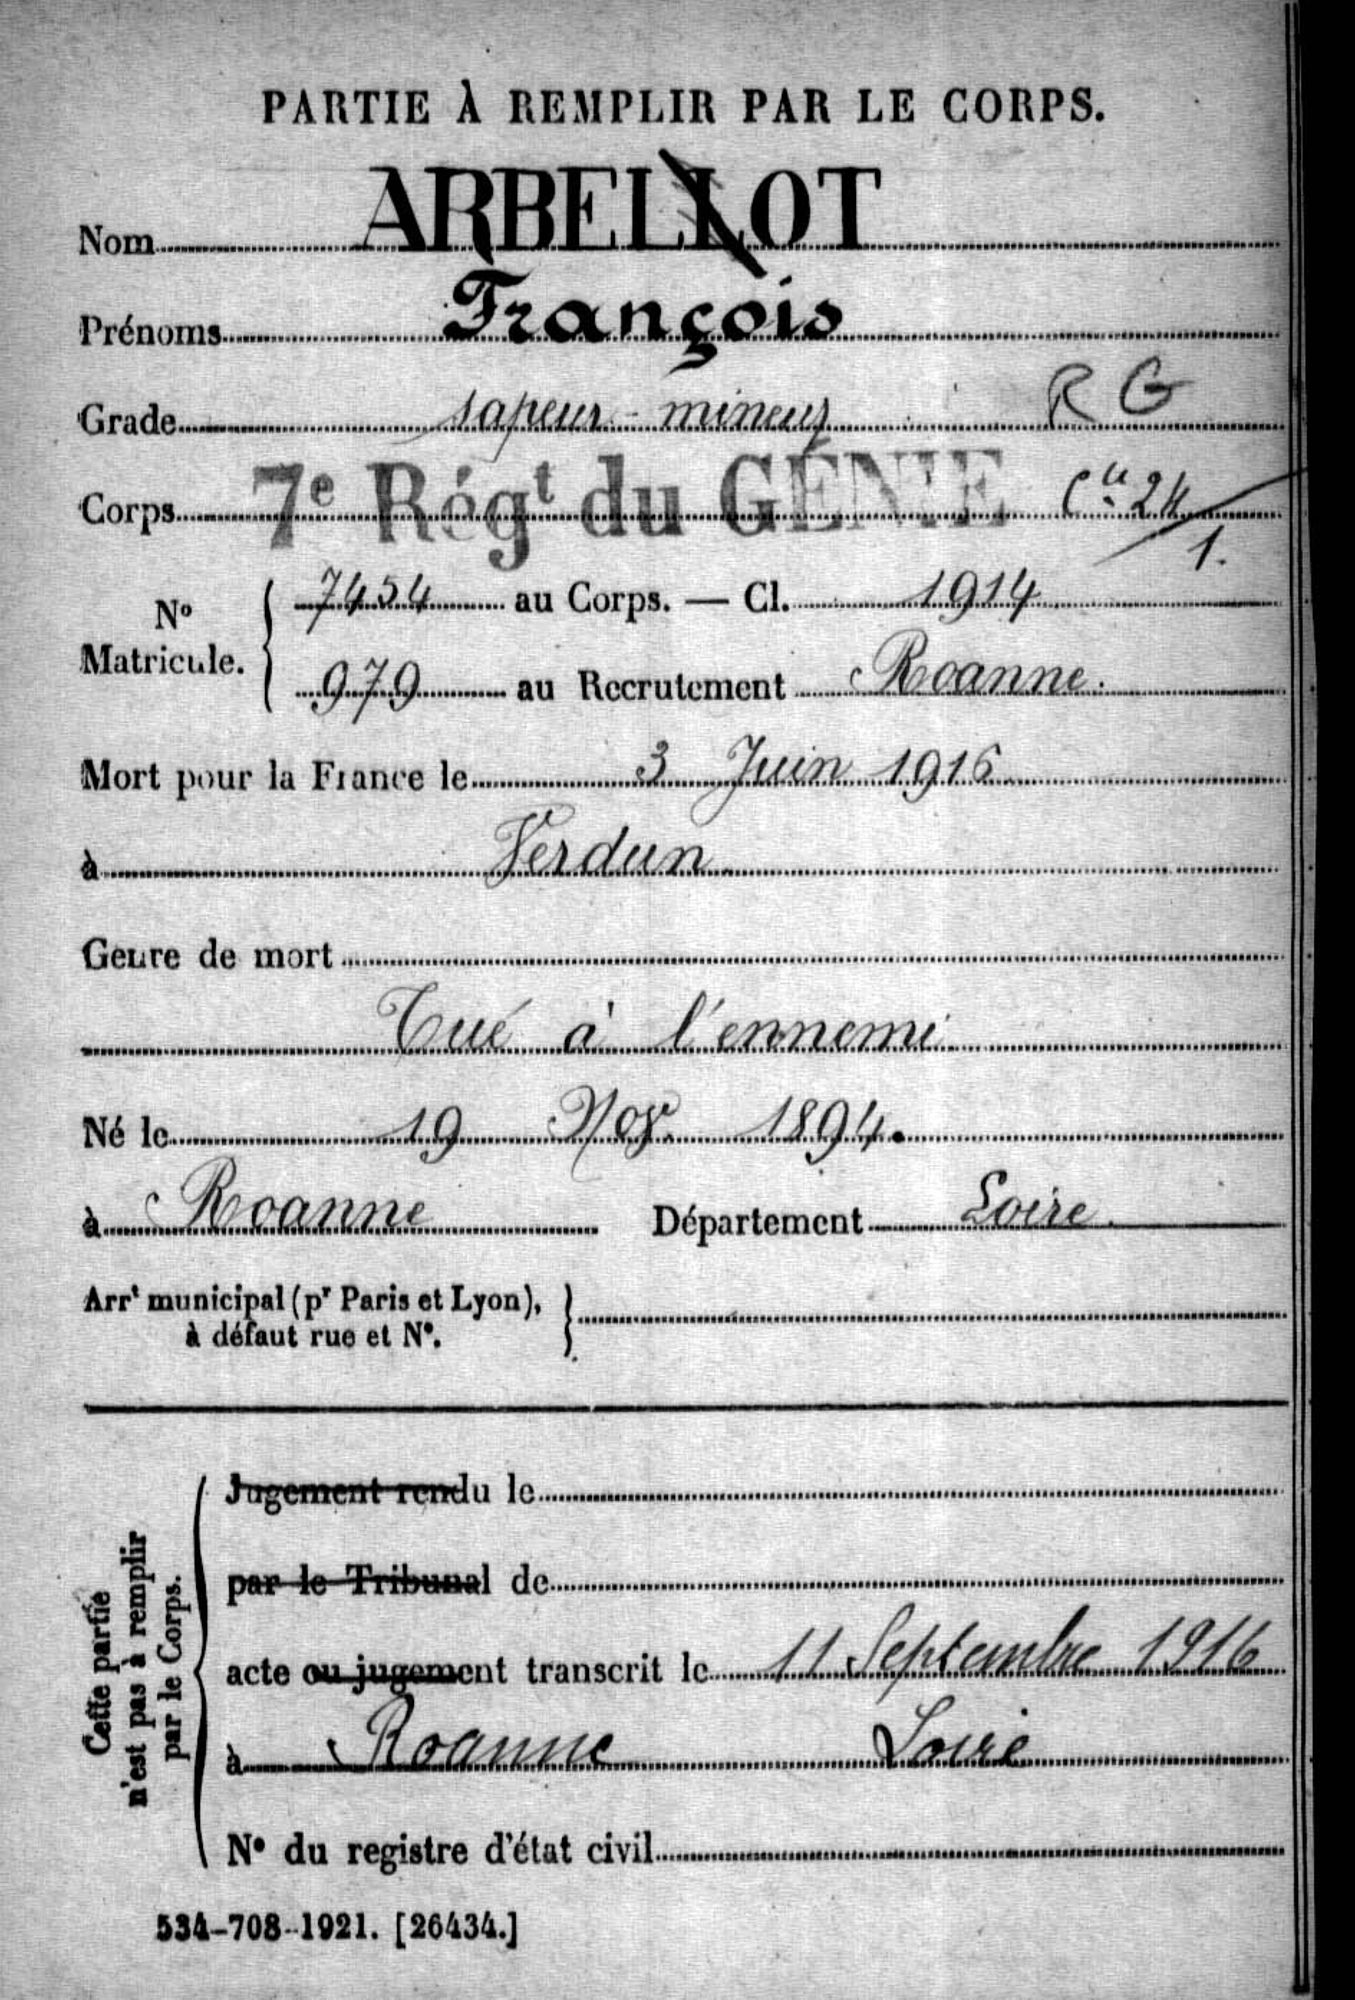 PARTIE À REMPLIR PAR LE CORPS.
Nom ARBELLOT
Prénoms François
Grade sapeur-mineur R G
Corps 7e Régt du GÉNIE Cie 24/1.
No Matricule. 7454 au Corps. — Cl. 1914
979 au Recrutement Roanne.
Mort pour la France le 3 Juin 1916
à Verdun
Genre de mort
Tué à l'ennemi
Né le 19 Nov. 1894.
à Roanne Département Loire.
Arrt municipal (pr Paris et Lyon),
à défaut rue et No.
Cette partie
n'est pas à remplir
par le Corps.
Jugement rendu le
par le Tribunal de
acte ou jugement transcrit le 11 Septembre 1916
à Roanne Loire
No du registre d'état civil
534-708-1921. [26434.]